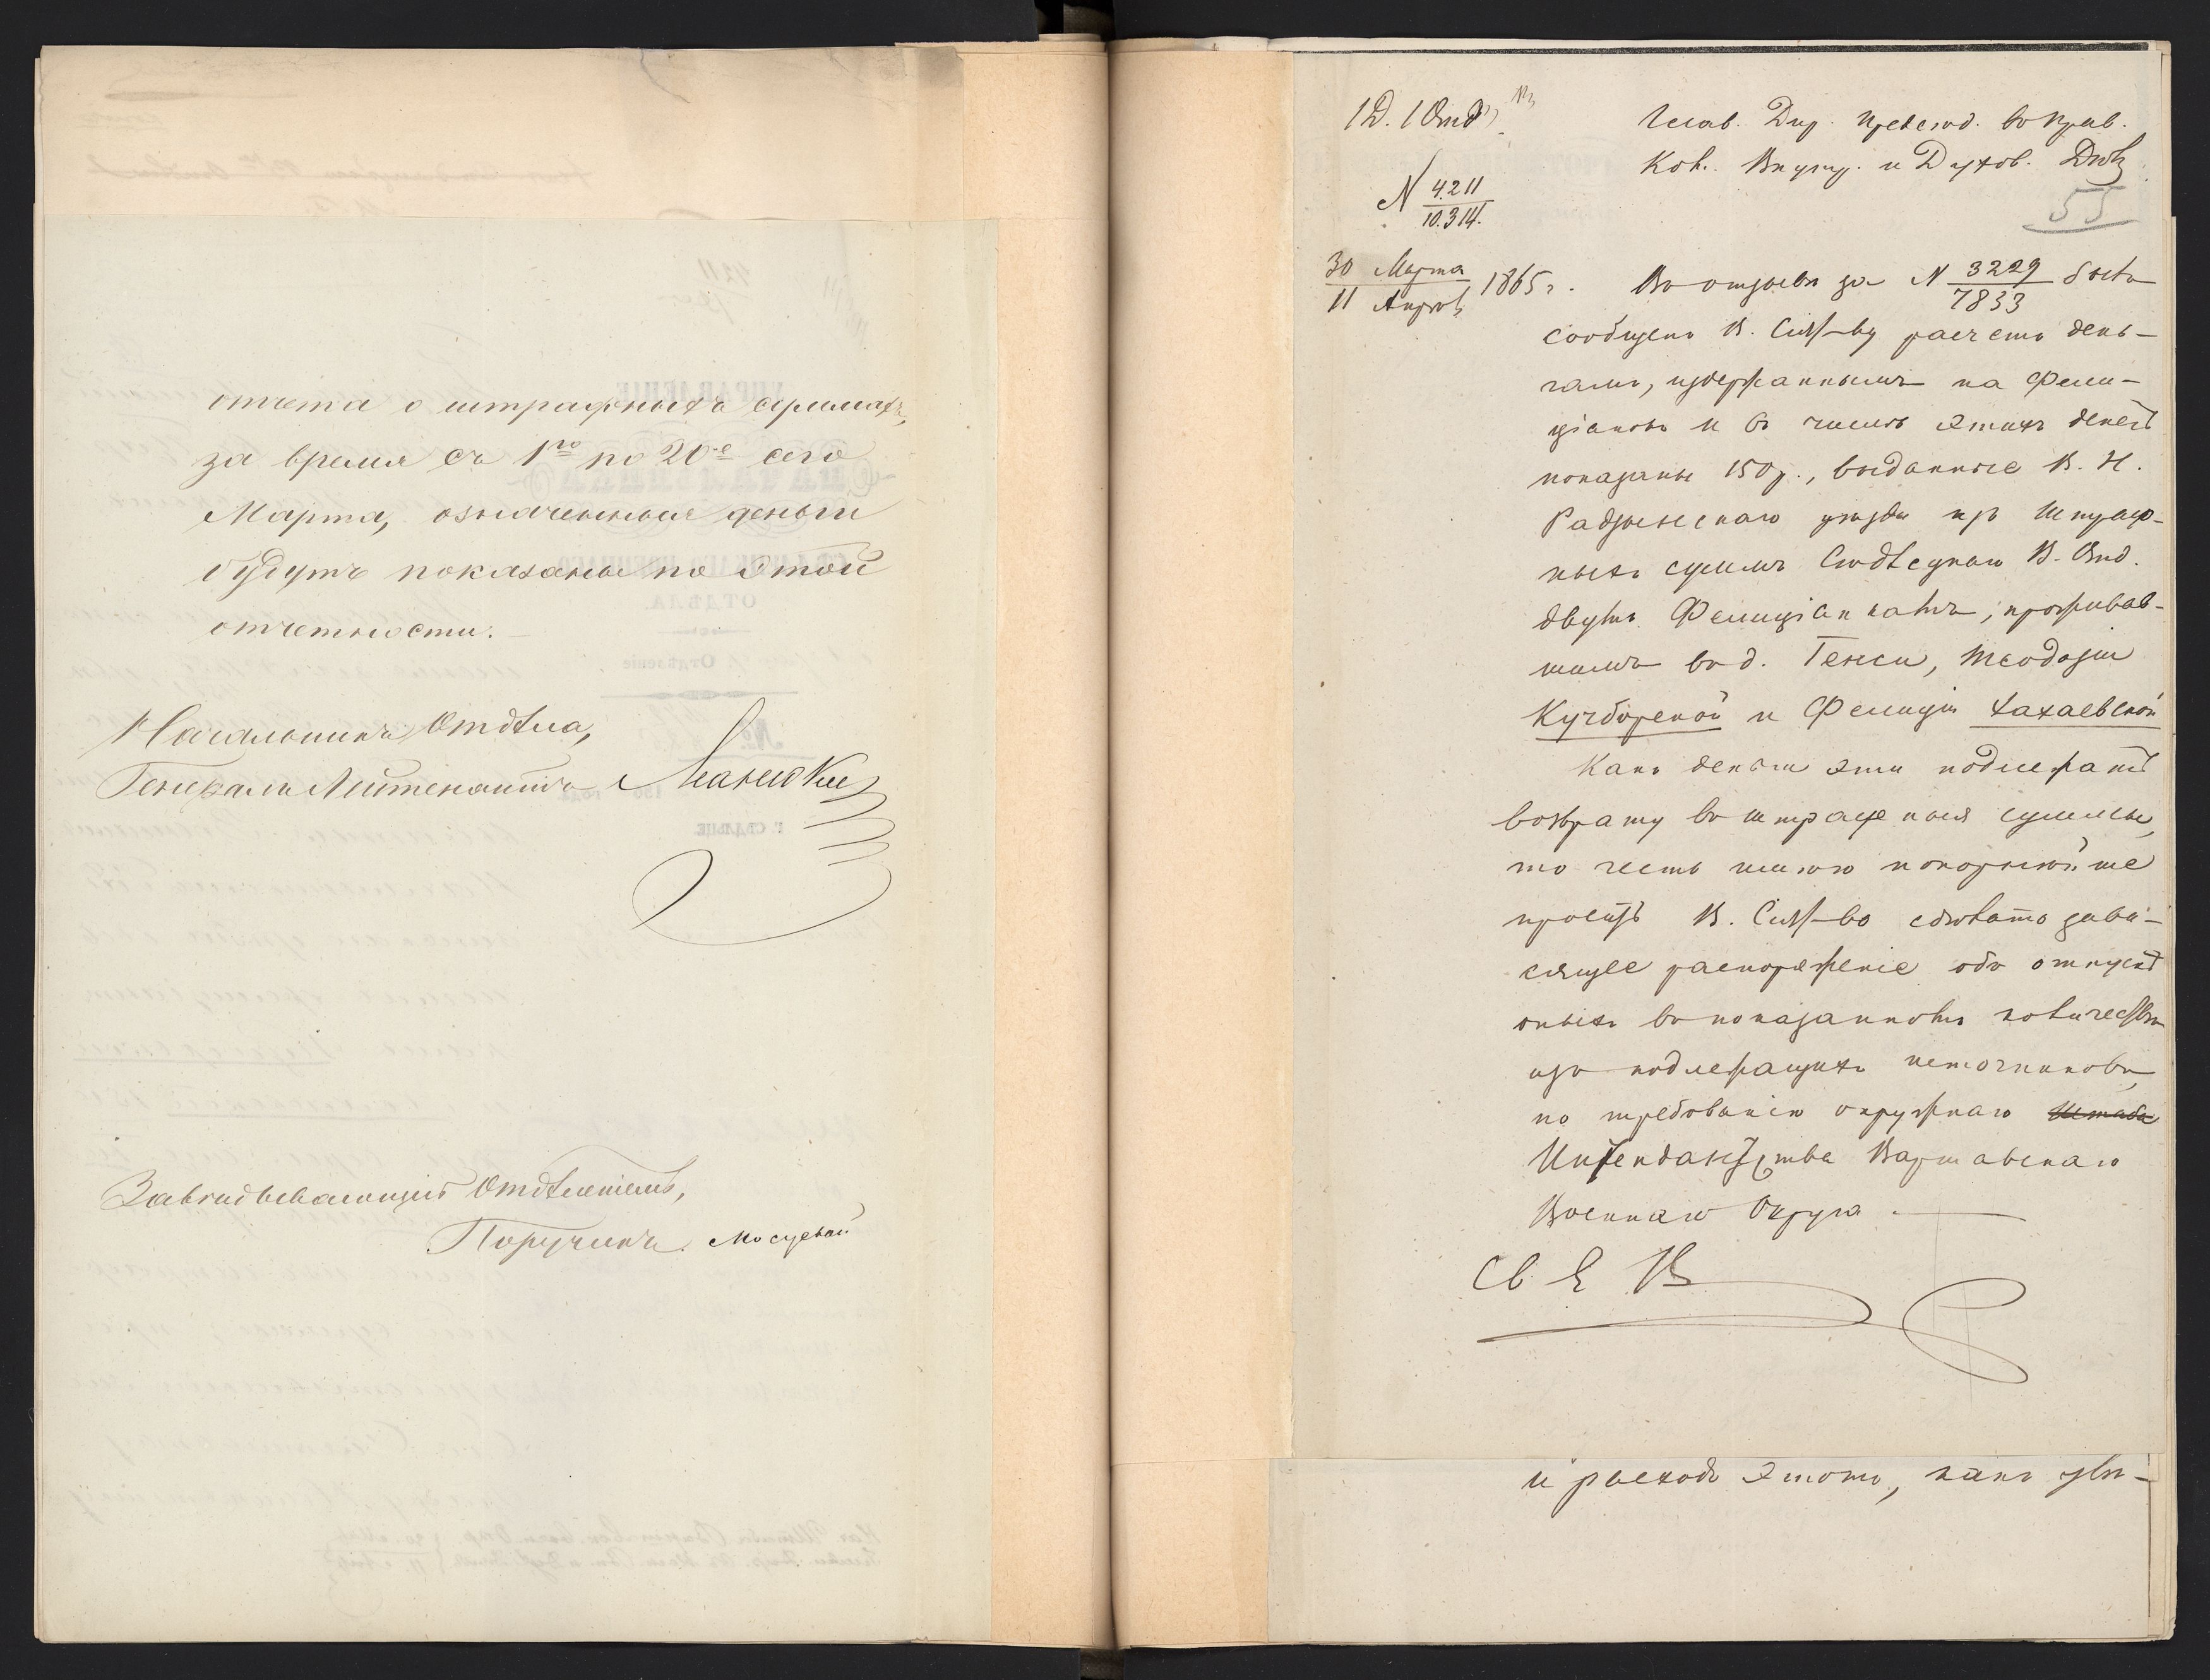 отчета о штрафныхъ суммахъ,
за время съ 1го по 20е сего
Марта, означенныя деньги
будутъ показаны по этой
отчетности.
Начальникъ Отдѣла,
Генералъ Лейтенантъ Манюкин
Завѣдывающій Отдѣленіемъ,
Поручикъ
1 Д. 1 Отд.
N 4211
10.314.
30 Марта
11 Апрѣл 1865 г.
Глав. Дир. Предсѣд. въ Прав.
Ком. Внутр. и Духов. Дѣлъ
55
Въ отзывѣ за N 3229
7833 былъ
сообщенъ В. Сія-ву расчетъ день-
гамъ, издержаннымъ на Фели-
ціановъ и въ числѣ этихъ денегъ
показаны 150 р., выданные В. Н.
Радзынскаго уѣзда изъ штраф-
ныхъ суммъ Сѣдлецкаго В. Отд.
двумъ Фелиціанкамъ, проживав-
шимъ въ д. Генси, Теодозіи
Кучборской и Фелиціи
Какъ деньги эти подлежатъ
возврату въ штрафныя суммы,
то честь имѣю покорнѣйше
просить В. Сія-во сдѣлать зави-
сящее распоряженіе объ отпускѣ
оныхъ въ показанномъ количествѣ
изъ подлежащихъ источниковъ,
по требованію окружнаго Штаба
Интендантства Варшавскаго
Военнаго Округа.
Св. Е. В
и расходъ этотъ, какъ увѣ-